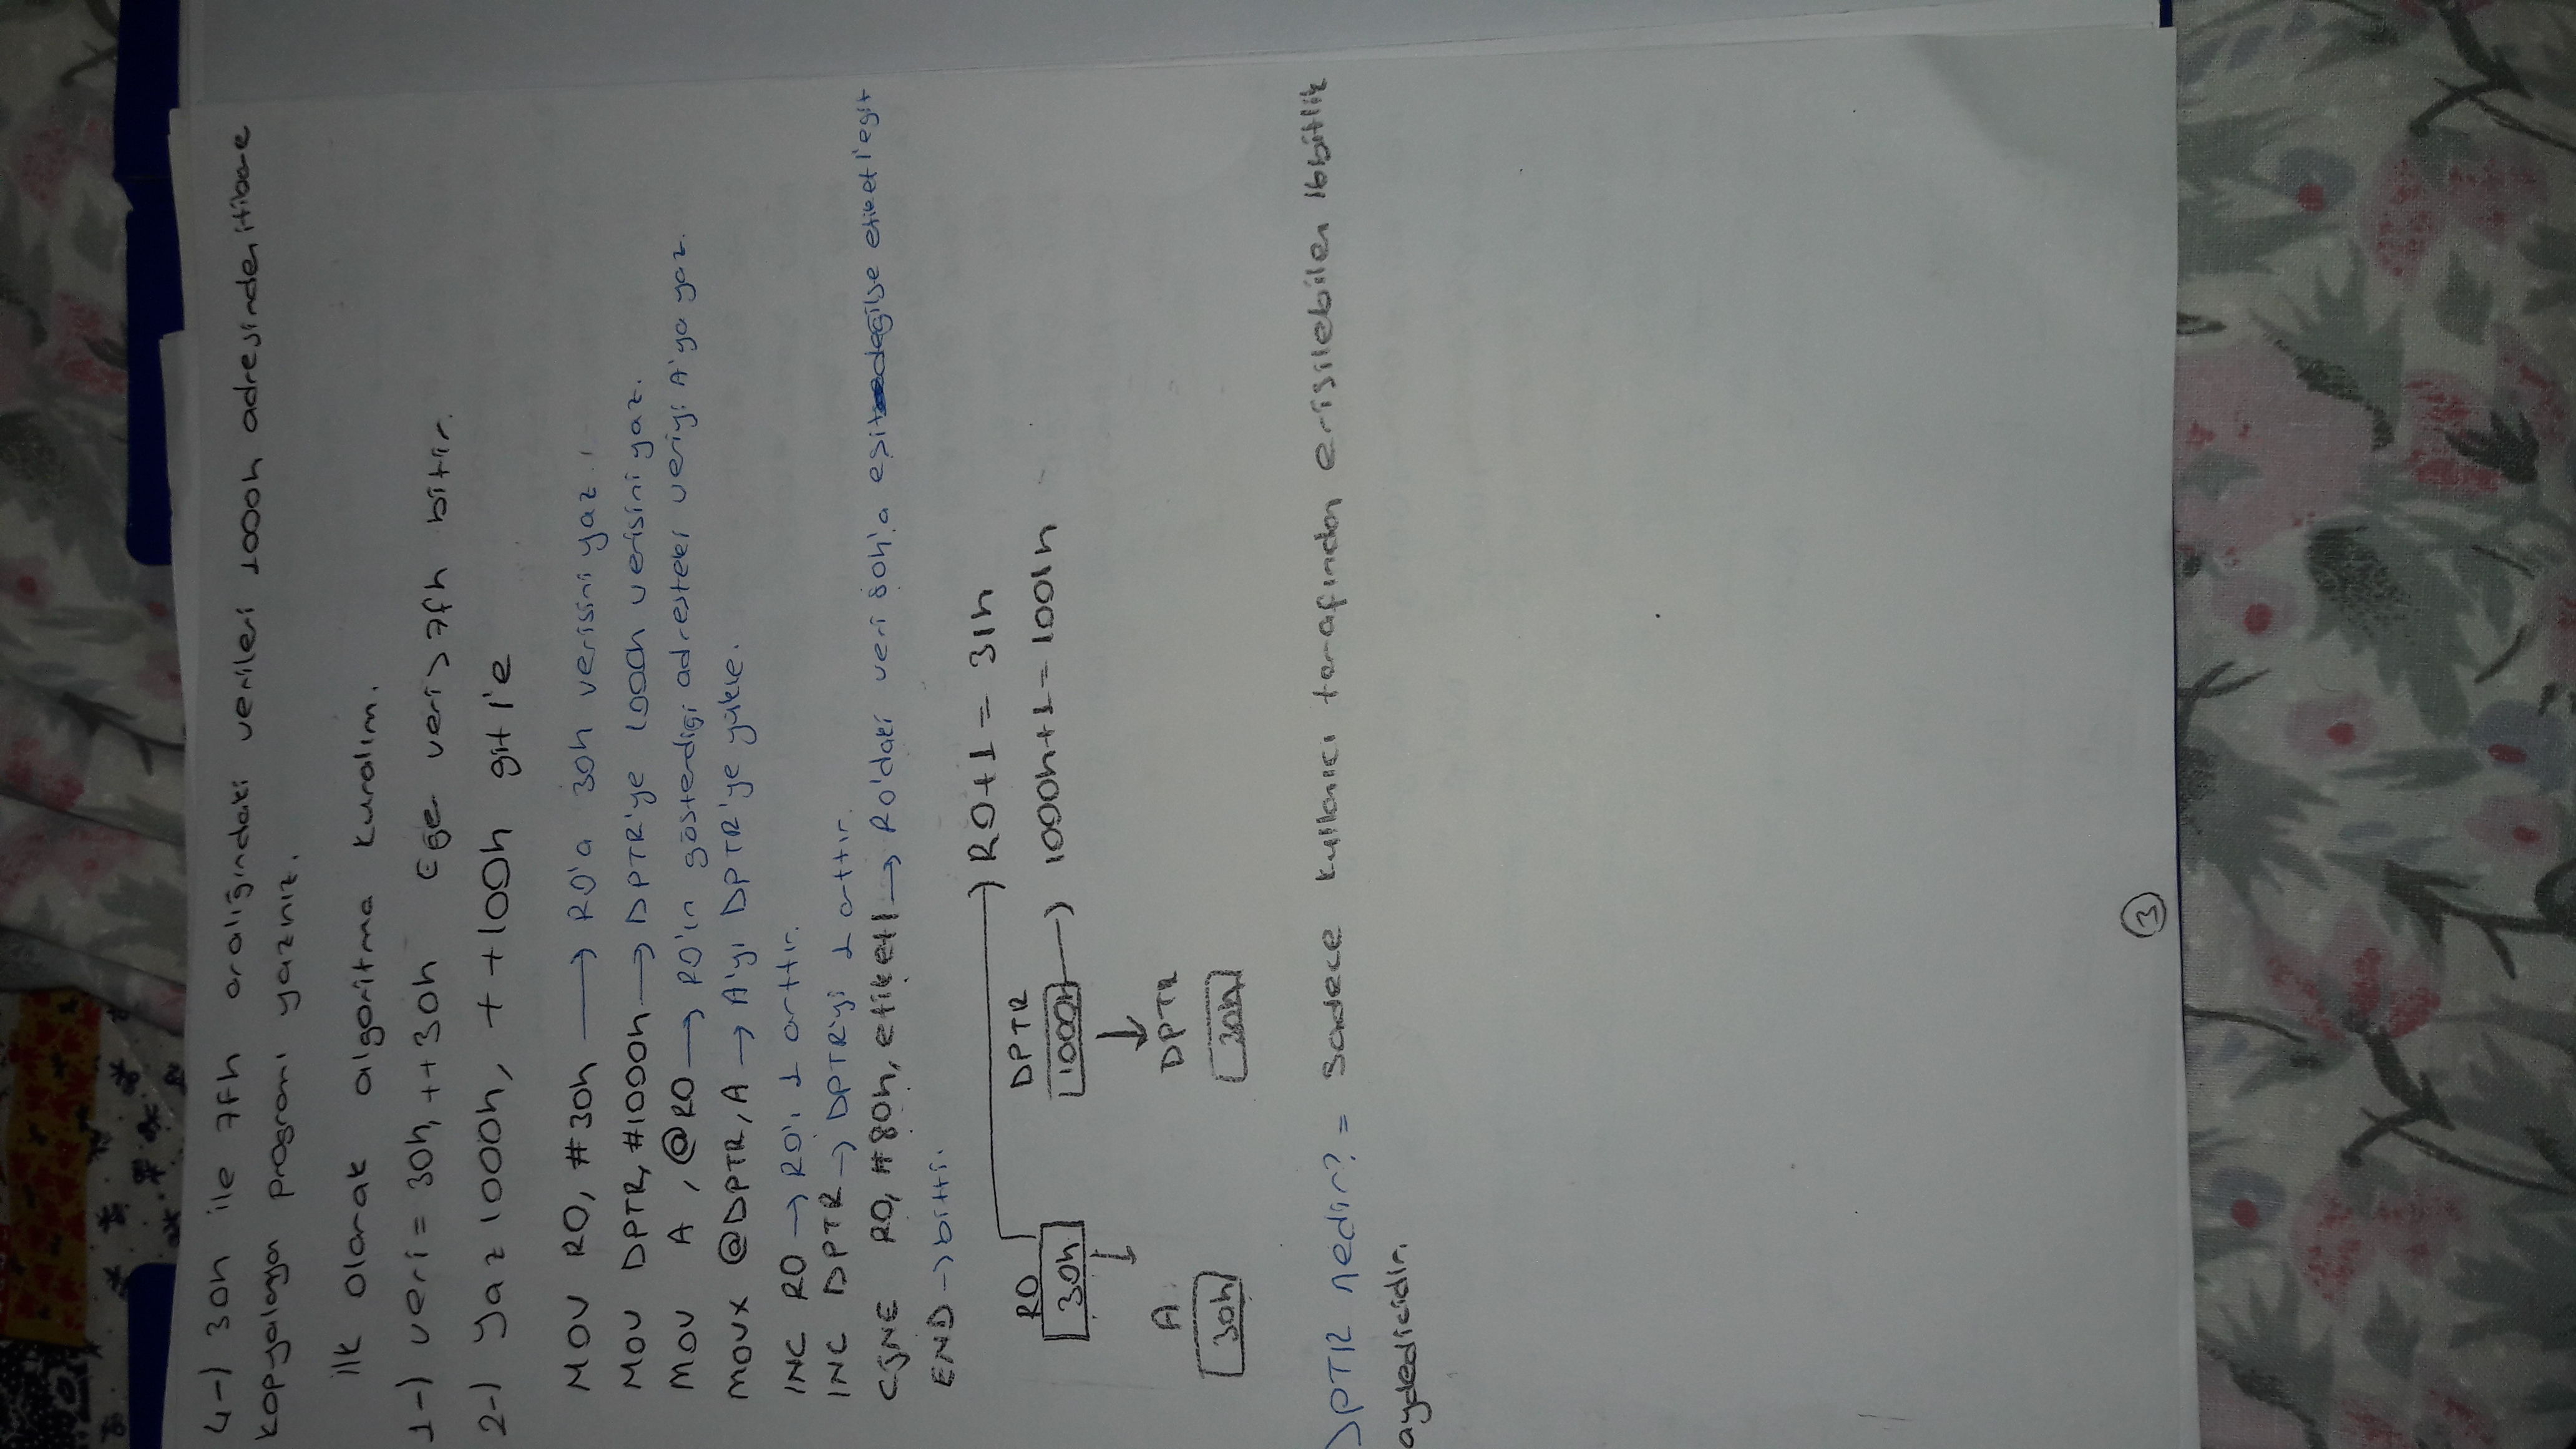 4-) 30h ile 7Fh aralığındaki verileri 1000h adresinden itibare
kopyalayan programı yazınız.
ilk olarak algoritma kuralım.
1-) veri = 30h, ++30h Eğer veri > 7fh bitir.
2-) Yaz 1000h, ++100h git 1'e
MOV R0, #30h → R0'a 30h verisini yaz.
MOV DPTR, #1000h → DPTR'ye 1000h verisini yaz.
MOV A, @R0 → R0'ın gösterdiği adresteki veriyi A'ya yaz.
MOVX @DPTR, A → A'yı DPTR'ye yükle.
INC R0 → R0'ı 1 arttır.
INC DPTR → DPTR'yi 1 arttır.
CJNE R0, #80h, etiket1 → R0'daki veri 80h'a eşit değilse etiket1'e git
END → bitti.
→ R0+1 = 31h
R0 DPTR
30h 1000h → 1000h+1 = 1001h
A DPTR
30h 30h
DPTR nedir? = Sadece kullanıcı tarafından erişilebilen 16bitlik
aydedicidir.
3